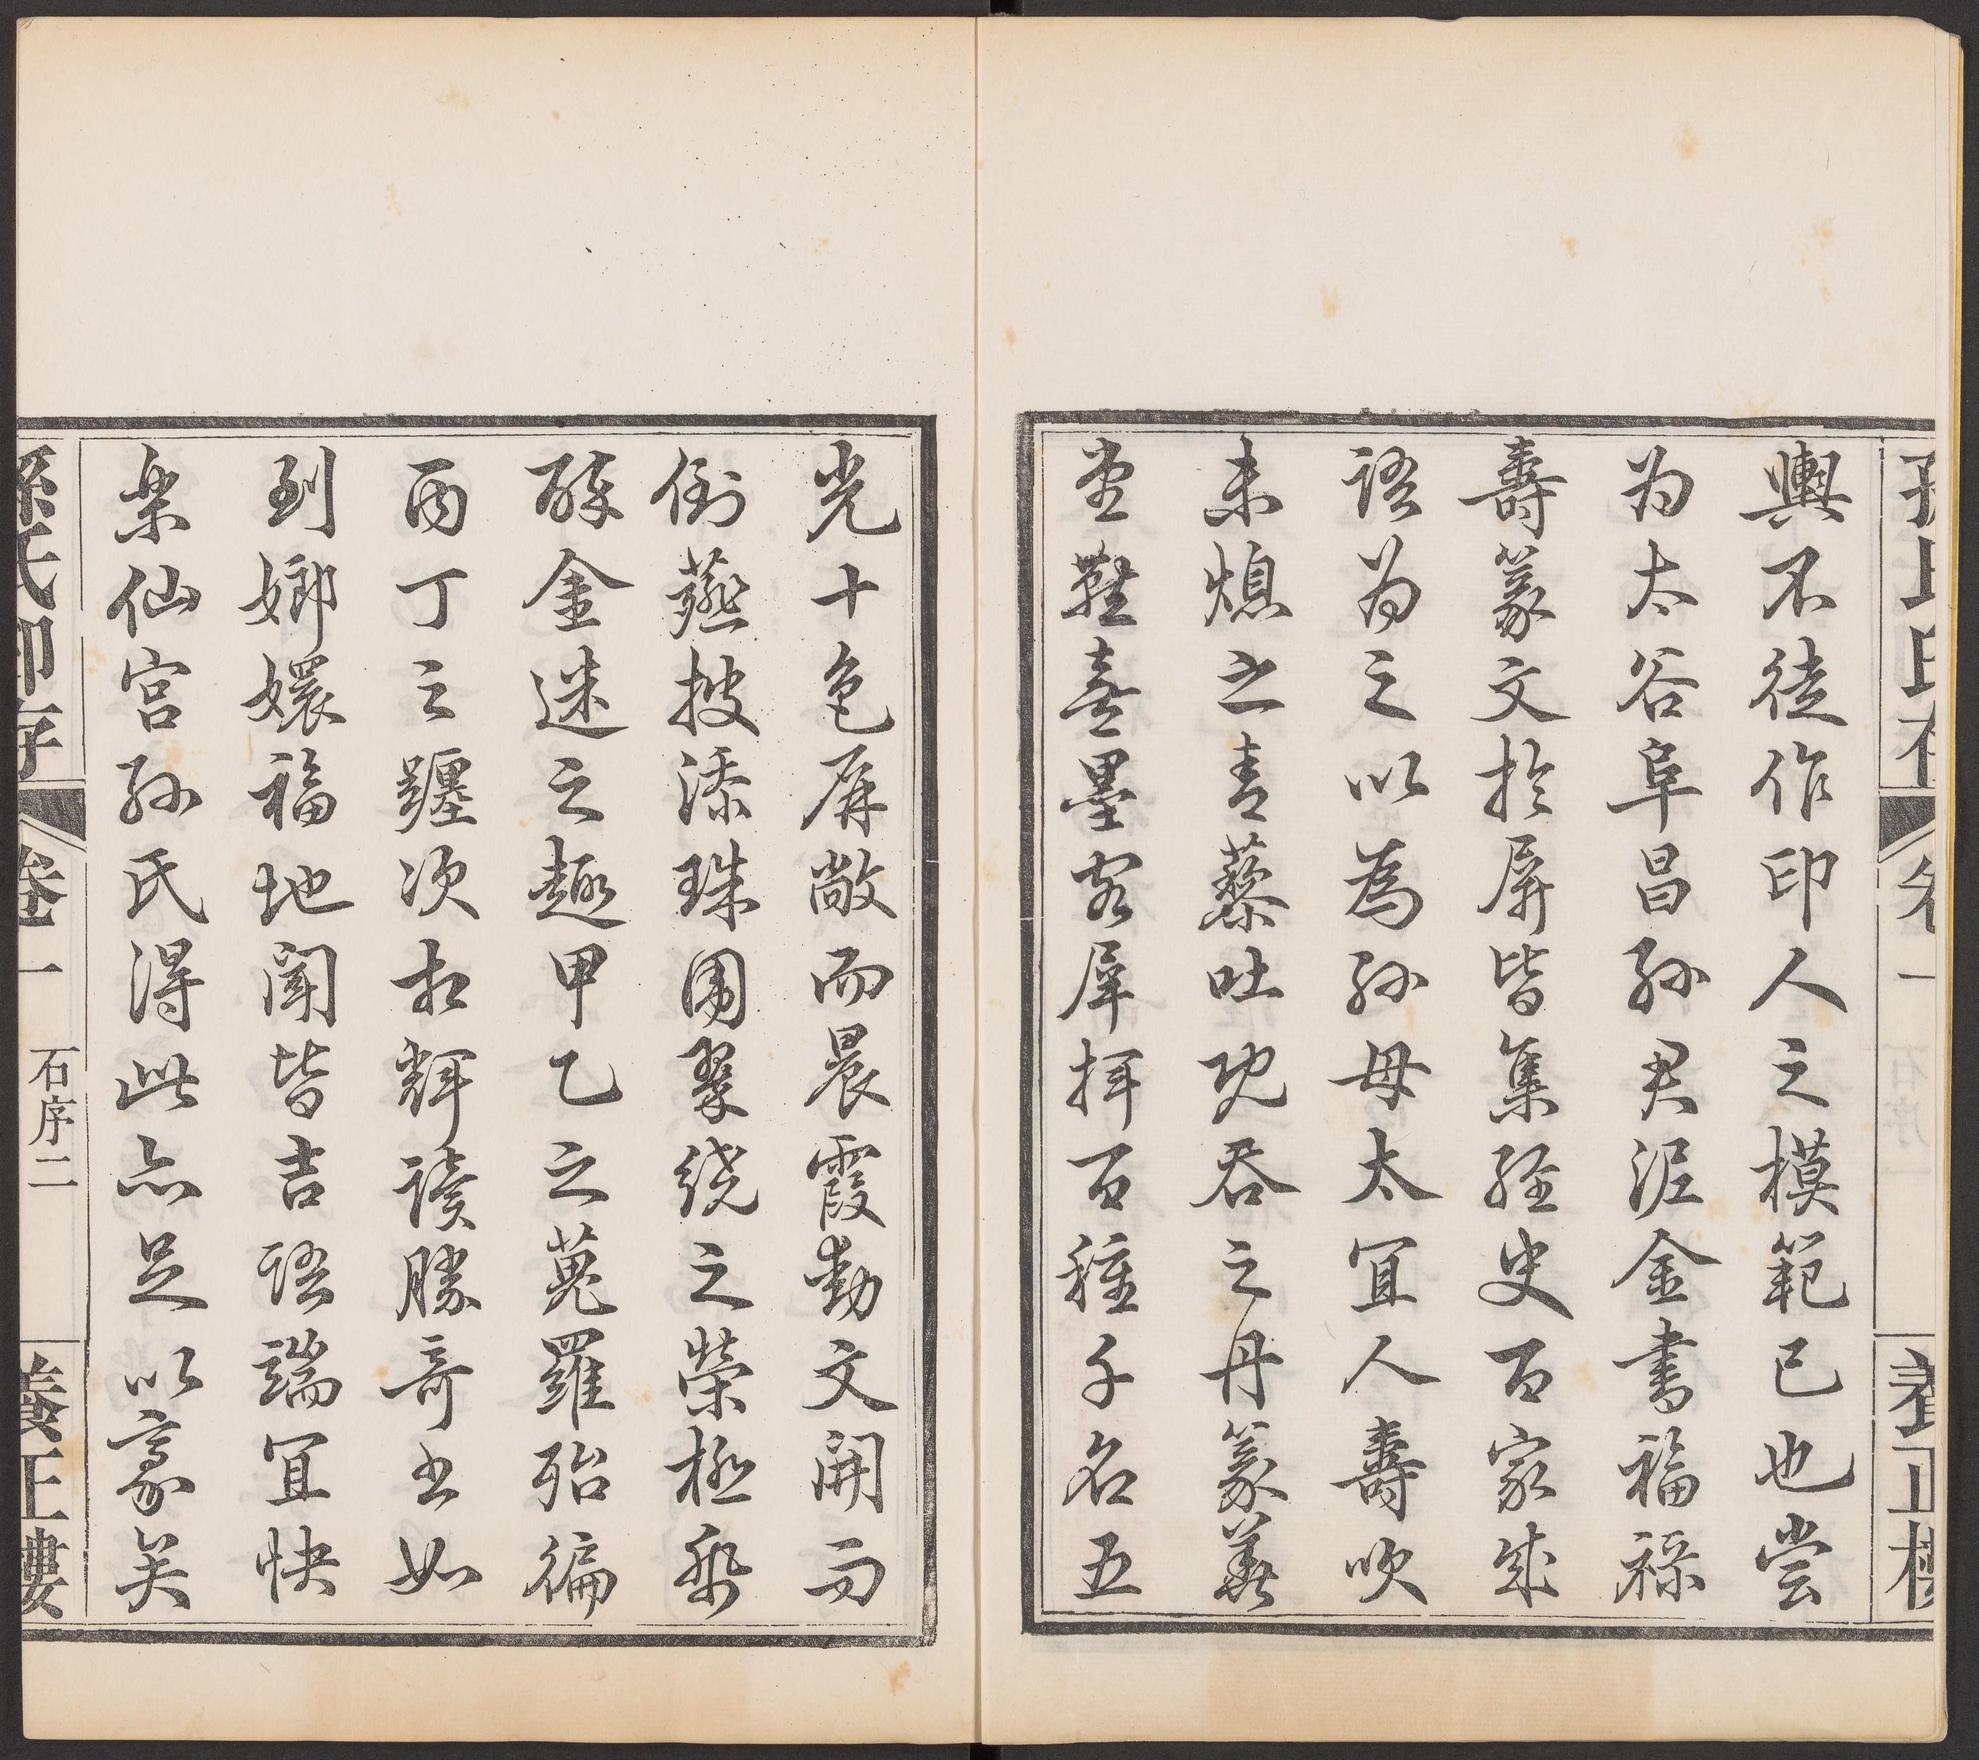 輿不徒作印人之模範已也嘗
為太谷阜昌孫君泥金書福祿
壽篆文於屏皆集經史百家成
語為之以為孫母太宜人壽吹
未熄之青藜吐既吞之丹篆義
堂鞋熹墨客犀揮百種千名五
光十色屏敞而晨霞動文開而
倒薤披添珠圍翠繞之榮極
醉金迷之趣甲乙之蒐羅殆徧
丙丁之躔次相輝讀勝奇書如
到嫏嬛福地聞皆吉語端宜快
樂仙宮孫氏得此亦足以豪矣
孫氏印存
卷一
石序二
養正樓